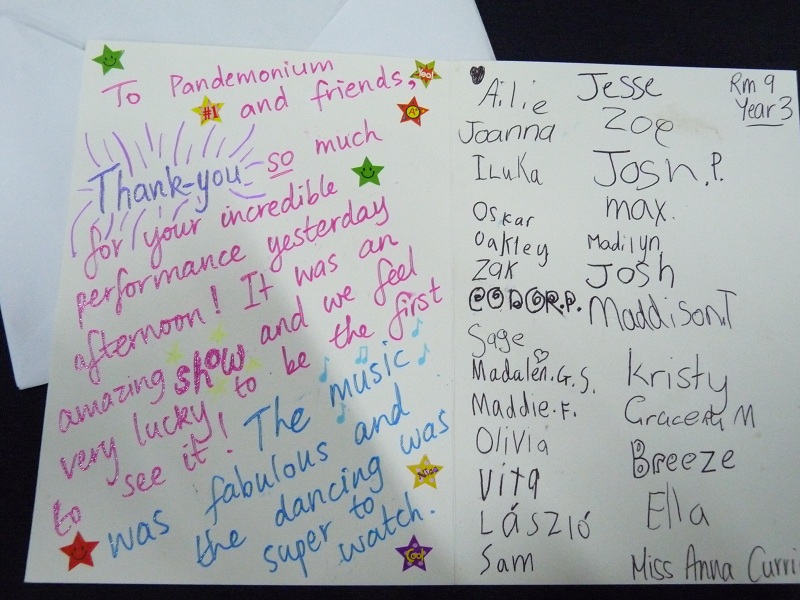 To Pandemonium
and friends,
Thank-you so much
for your incredible
performance yesterday
afternoon! It was an
amazing show and we feel
very lucky to be the first
to see it! The music
was fabulous and
the dancing was
super to
watch.
#1
A+
Cool
Rm 9
Year 3
Ailie
Joanna
Iluka
Oskar
Oakley
Zak
Sage
Madalen.G.S.
Maddie.F.
Olivia
Vita
László
Sam
Jesse
Zoe
Josh.P.
max.
Madilyn
Josh
Maddison.T
Kristy
Graceth M
Breeze
Ella
Miss Anna Curri